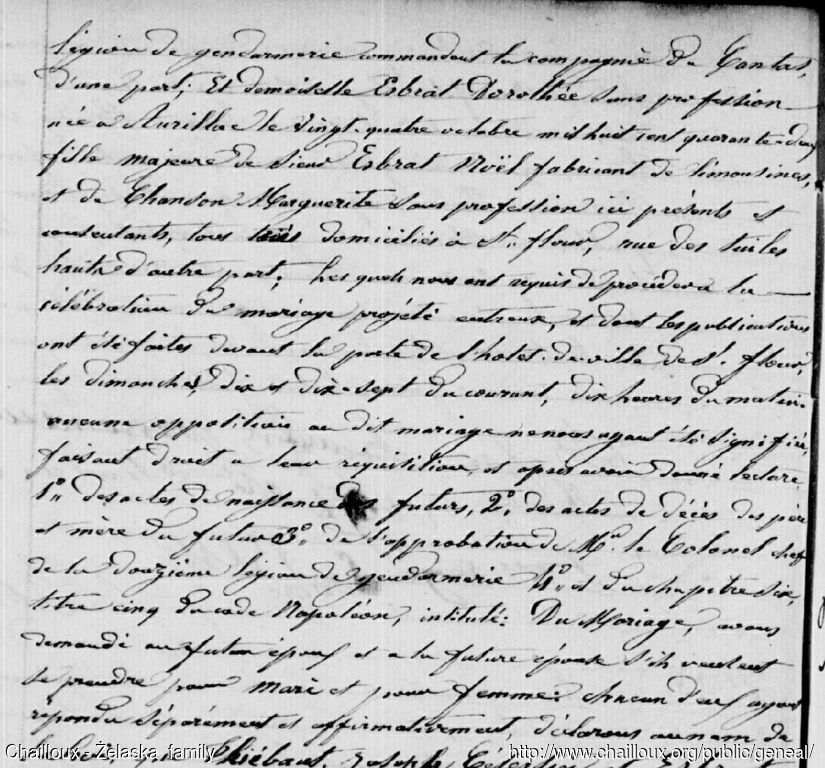 légion de gendarmerie commandant la compagnie du Cantal,
d'une part; Et demoiselle Esbrat Dorothée sans profession
née à Aurillac le vingt-quatre octobre mil huit cent quarante-deux
fille majeure de sieur Esbrat Noël fabricant de limousines,
et de Chanson Marguerite sans profession ici présents et
consentants, tous domiciliés à St. flour, rue des tuiles
haute d'autre part; Lesquels nous ont requis de procéder à la
célébration du mariage projeté entr'eux, et dont les publications
ont été faites devant la porte de l'hotel-de-ville de St. flour,
les dimanches, dix et dix-sept du courant, dix heures du matin.
aucune opposition au dit mariage ne nous ayant été signifiée,
faisant droit à leur requisition, et après avoir donné lecture,
1°. des actes de naissance des futurs, 2°. des actes de décès des père
et mère du futur 3°. de l'approbation de Mr. le Colonel chef
de la douzième légion de gendarmerie 4°. et du chapitre six,
titre cinq du code Napoléon, intitulé: Du Mariage, avons
demandé au futur époux et à la future épouse s'ils veulent
se prendre pour mari et pour femme: chacun d'eux ayant
répondu séparément et affirmativement, déclarons au nom de
la loi Thiébaut, Joseph
Chailloux - Żelaska family
http://www.chailloux.org/public/geneal/